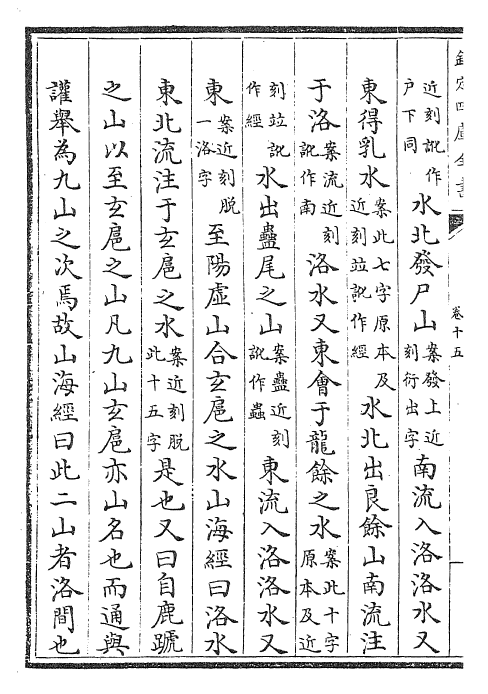 欽定四庫全書
卷十五
近刻訛作户下同水北發尸山案發上近刻衍出字南流入洛洛水又
東得乳水案此七字原本及近刻竝訛作經水北出良餘山南流注
于洛案流近刻訛作南洛水又東會于龍餘之水案此十字原本及近
刻竝訛作經水出蠱尾之山案蠱近刻訛作蟲東流入洛洛水又
東案近刻脱一洛字至陽虛山合玄扈之水山海經曰洛水
東北流注于玄扈之水案近刻脱此十五字是也又曰自鹿蹏
之山以至玄扈之山凡九山玄扈亦山名也而通與
讙舉為九山之次焉故山海經曰此二山者洛間也